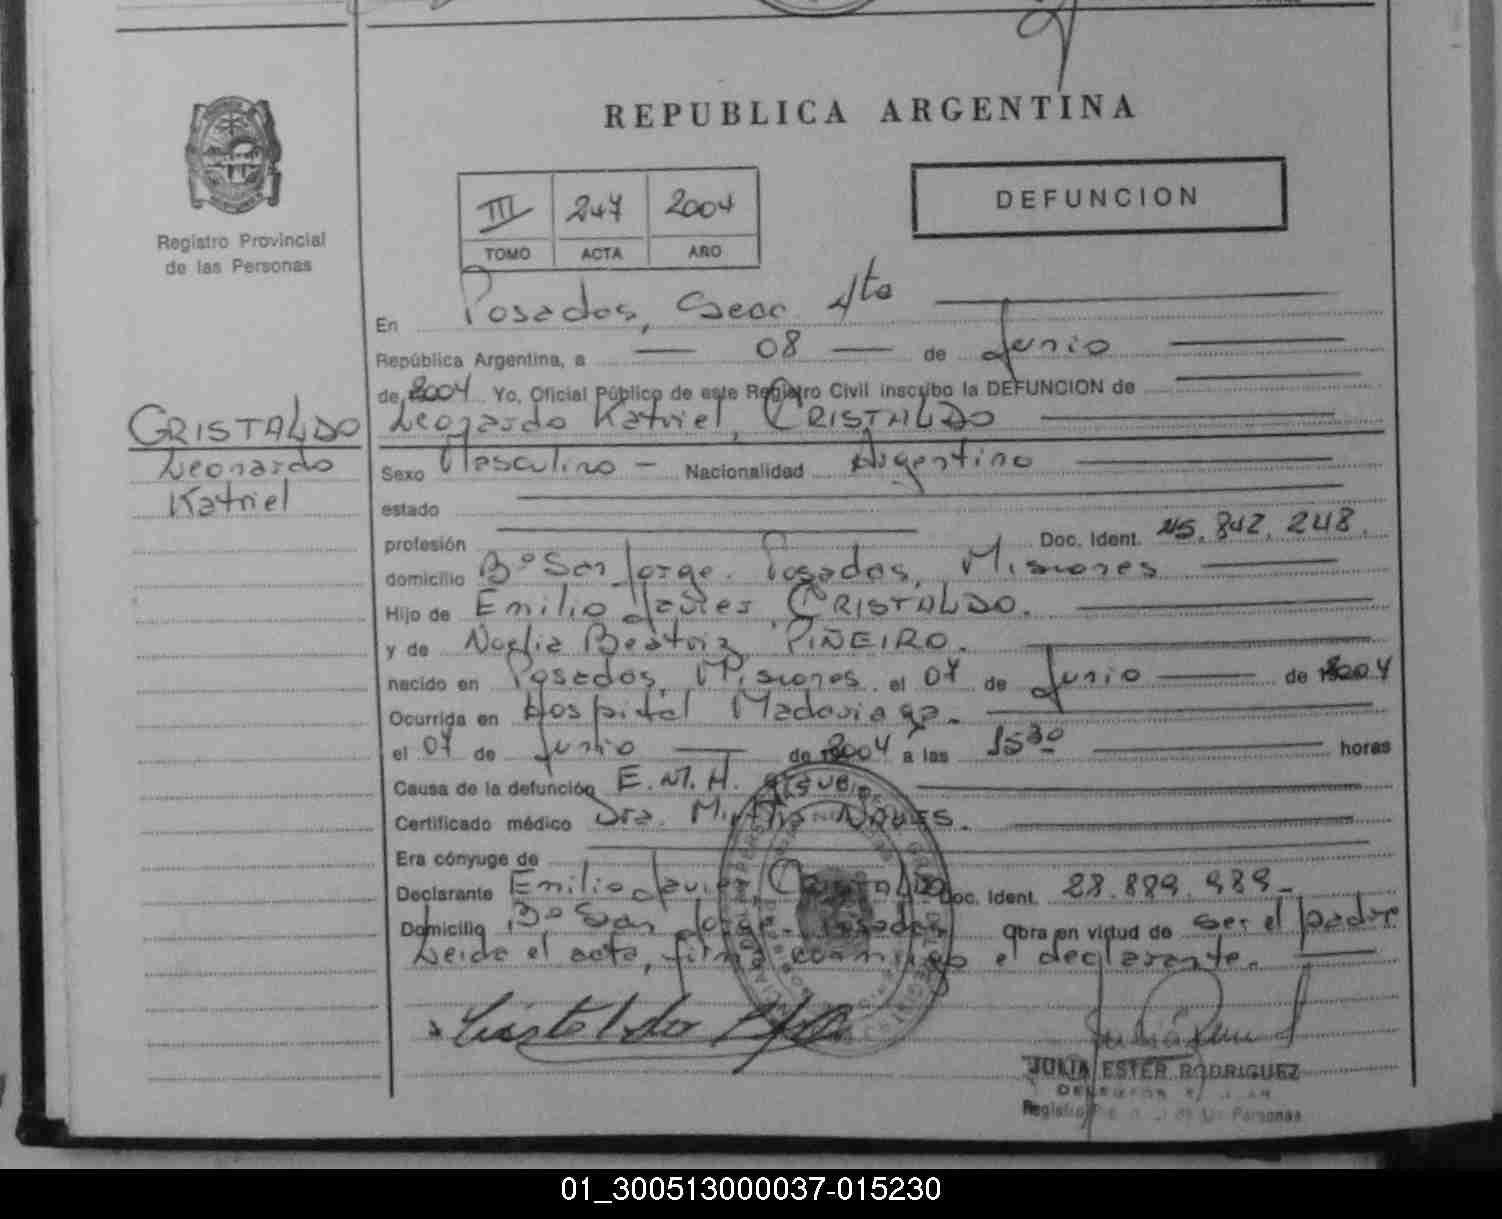 REPUBLICA ARGENTINA
DEFUNCION
III 247 2004
TOMO ACTA AÑO
Registro Provincial
de las Personas
En Posadas, Secc 4ta
República Argentina, a 08 de Junio
de 2004 Yo, Oficial Público de este Registro Civil inscribo la DEFUNCION de
CRISTALDO
Leonardo
Katriel
Leonardo Katriel, CRISTALDO
Sexo Masculino - Nacionalidad Argentino
estado
profesión Doc. Ident. 45.842.248.
domicilio Bº San Jorge. Posadas, Misiones
Hijo de Emilio Javier CRISTALDO.
y de Noelia Beatriz PIÑEIRO.
nacido en Posadas, Misiones. el 07 de Junio de 2004
Ocurrida en Hospital Madariaga.
el 07 de Junio de 2004 a las 15 30 horas
Causa de la defunción E.M.H.
Certificado médico Dra.
Era cónyuge de
Declarante Emilio Javier Cristaldo Doc. Ident. 28.889.989-
Domicilio Bº San Jorge. Posadas Obra en virtud de ser el padre
Leida el acta, firma conmigo el declarante.
JULIA ESTER RODRIGUEZ
Registro de las Personas
01_300513000037-015230